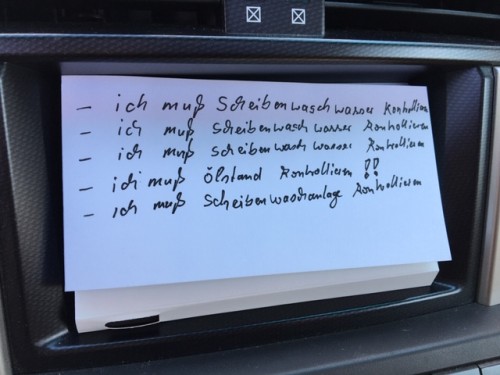 - ich muß Scheibenwaschwasser Kontrollieren
- ich muß Scheibenwaschwasser Kontrollieren
- ich muß Scheibenwaschwasser Kontrollieren
- ich muß Ölstand Kontrollieren !!
- ich muß Scheibenwaschanlage Kontrollieren